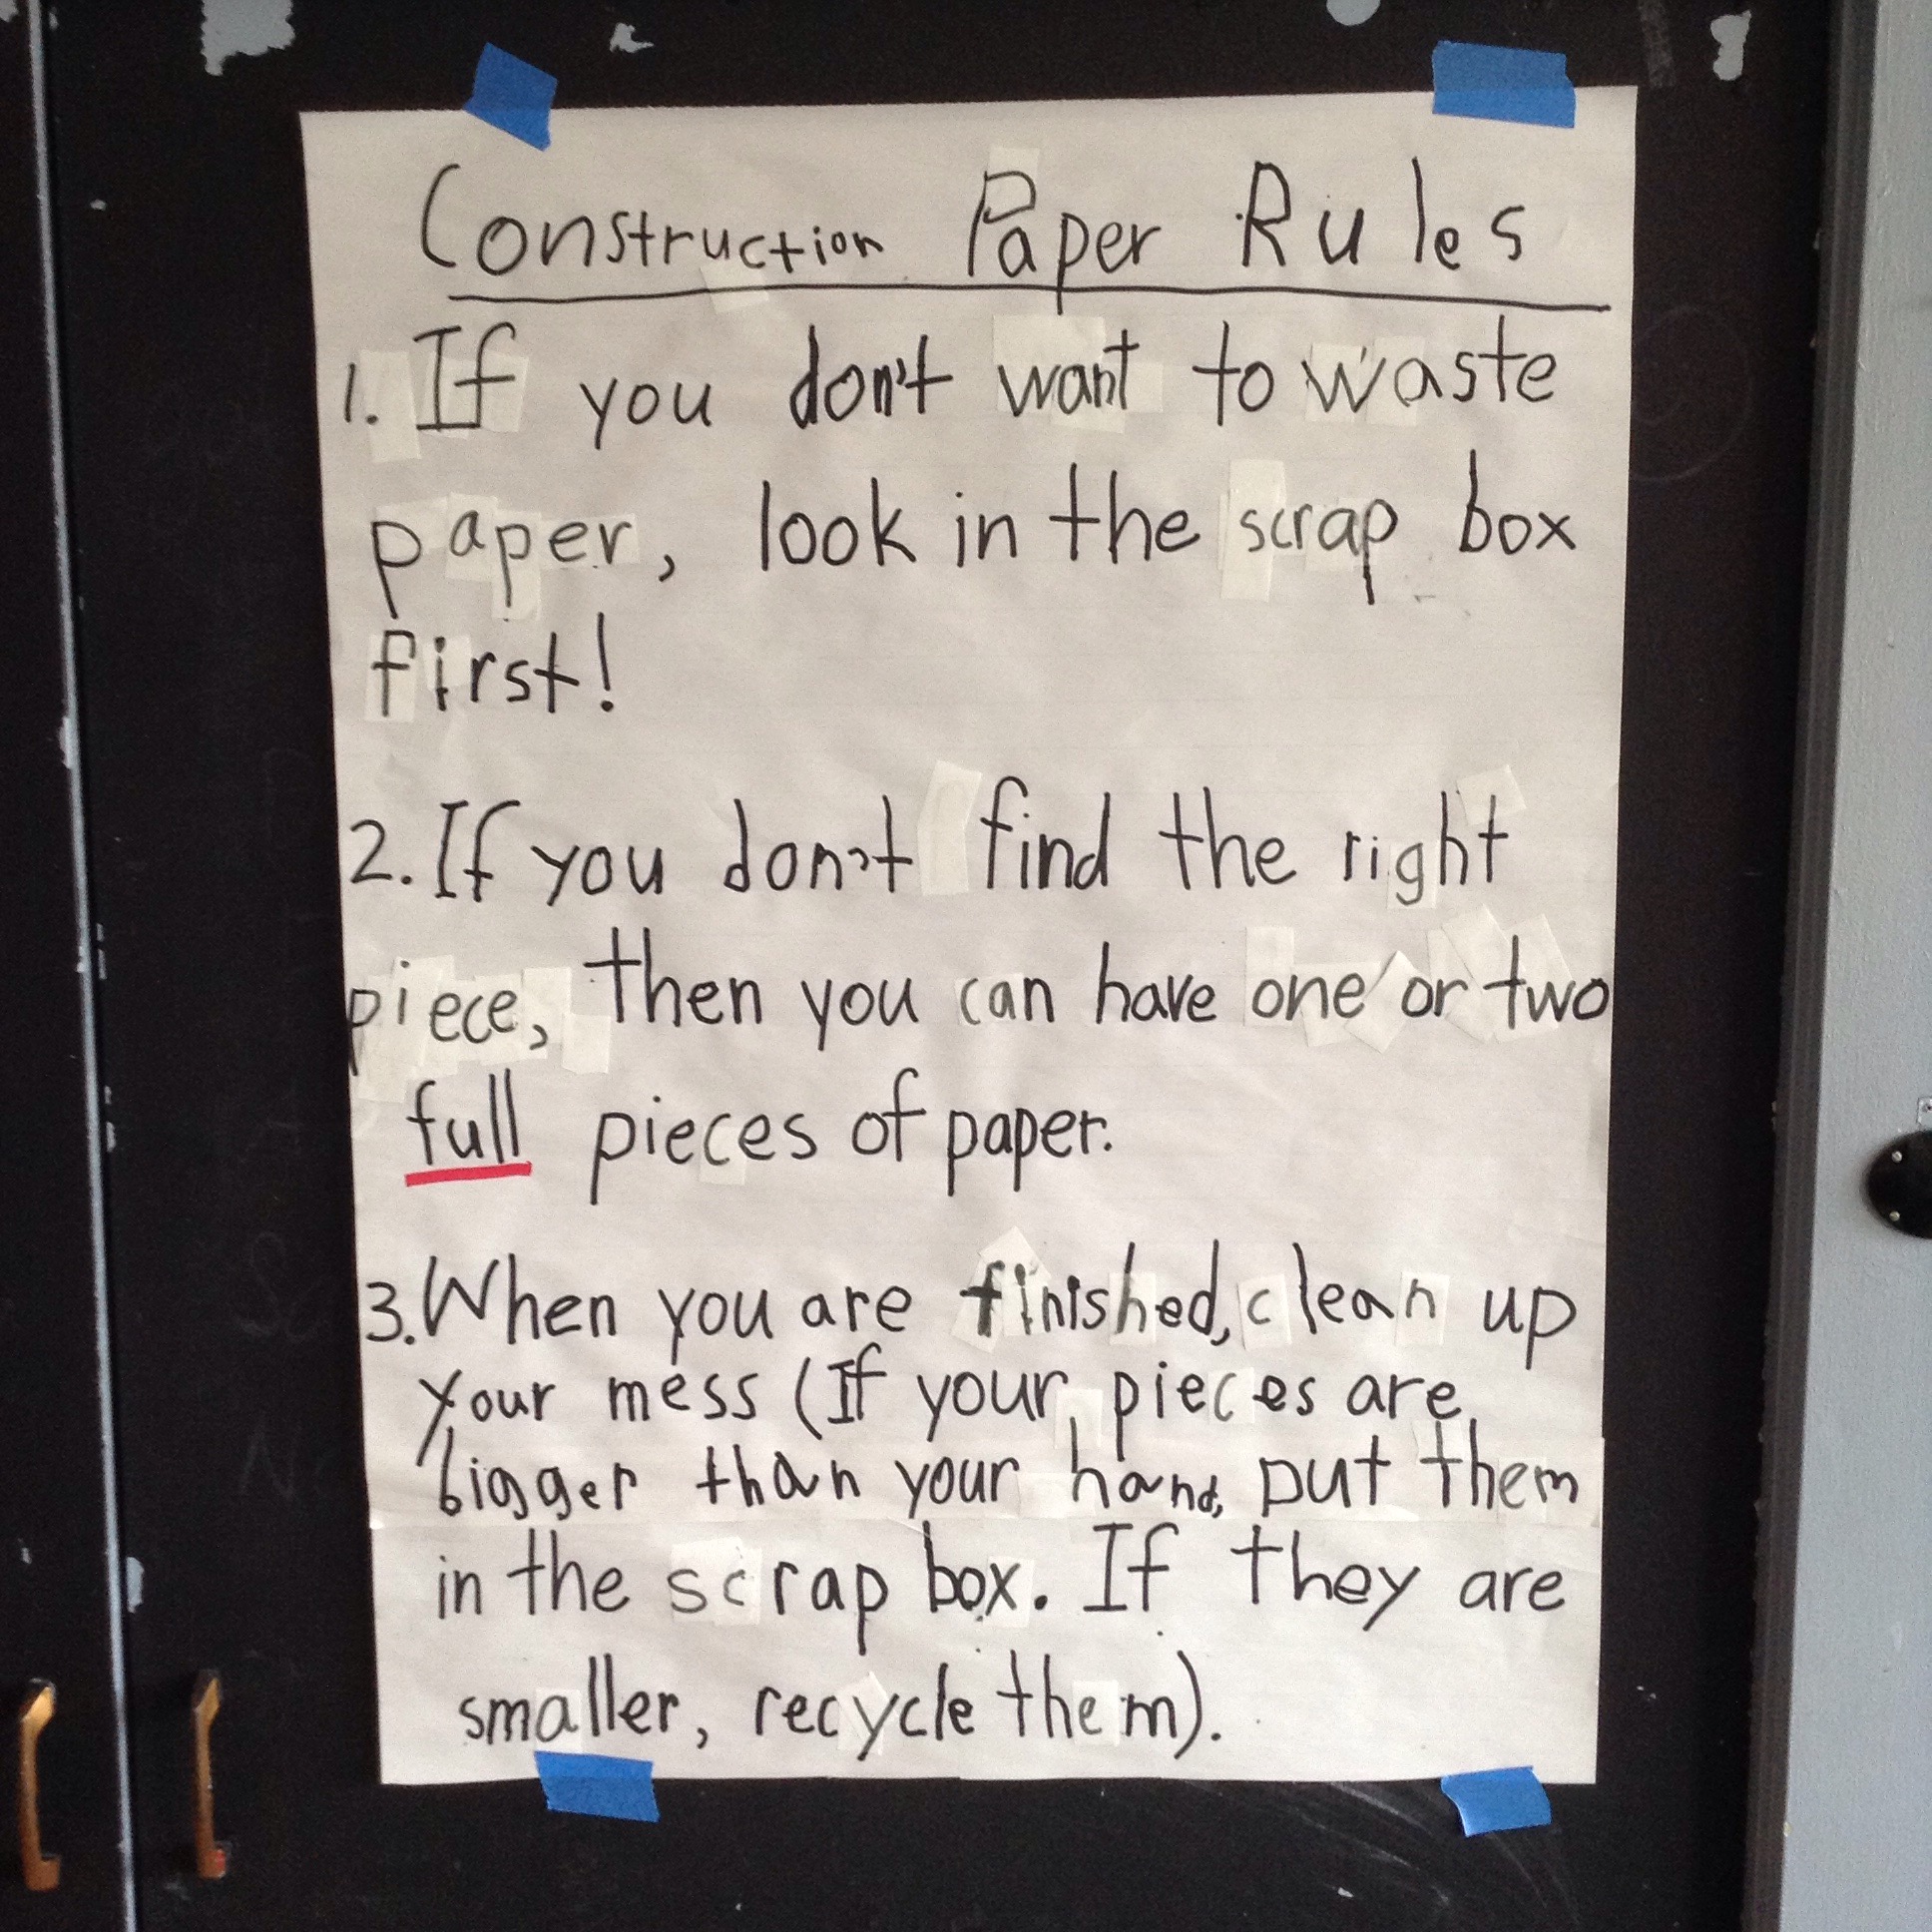 Construction Paper Rules
1. If you don't want to waste
paper, look in the scrap box
first!
2. If you don't find the right
piece, then you can have one or two
full pieces of paper.
3. When you are finished, clean up
your mess (If your pieces are
bigger than your hand, put them
in the scrap box. If they are
smaller, recycle them).